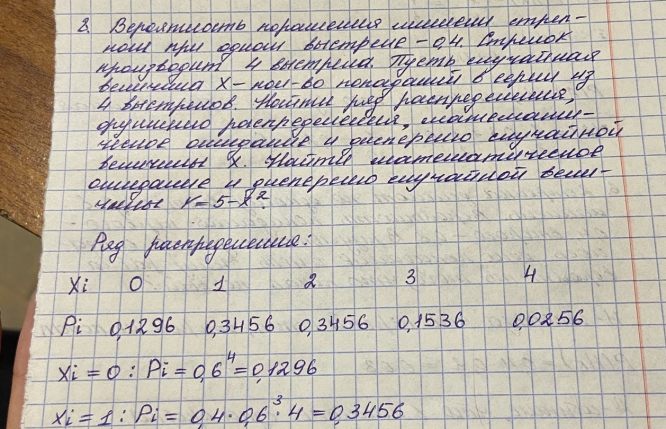 2. Вероятность поражения мишени стрел-
ком при одном выстреле - 0,4. Стрелок
производит 4 выстрела. Пусть случайная
величина X - кол-во попаданий в серии из
4 выстрелов. Найти ряд распределения,
функцию распределения, математи-
ческое ожидание и дисперсию случайной
величины X. Найти математическое
ожидание и дисперсию случайной вели-
чины Y = 5 - X²
Ряд распределения:
Xi 0 1 2 3 4
Pi 0,1296 0,3456 0,3456 0,1536 0,0256
Xi = 0 : Pi = 0,6⁴ = 0,1296
Xi = 1 : Pi = 0,4 · 0,6³ · 4 = 0,3456